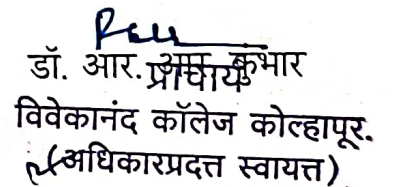 डॉ. आर. आर. कुंभार
प्राचार्य
विवेकानंद कॉलेज कोल्हापूर.
(अधिकारप्रदत्त स्वायत्त)